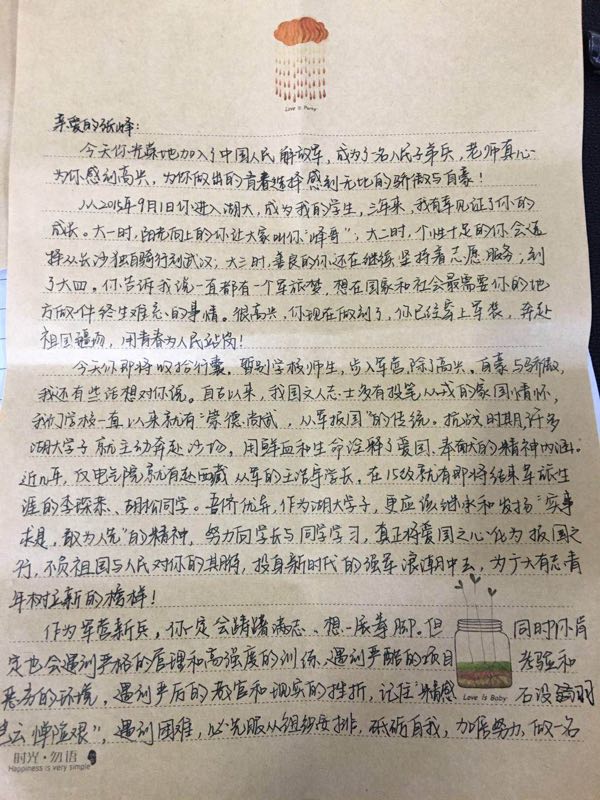 Love is Baby
亲爱的张峰：
今天你光荣地加入了中国人民解放军，成为了名人民子弟兵，老师真心
为你感到高兴，为你做出的青春选择感到无比的骄傲与自豪！
从2015年9月1日你进入湖大，成为我的学生，三年来，我有幸见证了你的
成长。大一时，阳光向上的你让大家叫你“峰哥”；大二时，个性十足的你会选
择从长沙独自骑行到武汉；大三时，善良的你还在继续坚持着志愿服务；到
了大四。你告诉我说一直都有一个军旅梦，想在国家和社会最需要你的地
方做件终生难忘的事情。很高兴，你现在做到了，你已经穿上军装，奔赴
祖国疆场，用青春为人民站岗！
今天你即将收拾行囊，暂别学校师生，步入军营，除了高兴、自豪与骄傲，
我还有些话想对你说。自古以来，我国文人志士多有投笔从戎的家国情怀，
我们学校一直以来就有“崇德尚武，从军报国”的传统。抗战时期许多
湖大学子就主动奔赴沙场，用鲜血和生命诠释了爱国、奉献的精神内涵。
近几年，仅电气院就有赴西藏从军的王浩宇学长，在15级就有即将结束军旅生
涯的李琛、胡松同学。吾侪优异，作为湖大学子，更应该继承和发扬“实事
求是，敢为人先”的精神，努力向学长与同学学习，真正将爱国之心化为报国之
行，不负祖国与人民对你的期待，投身新时代的强军浪潮中去，为广大有志青
年树立新的榜样！
作为军营新兵，你一定会踌躇满志、想一展拳脚。但同时你肯
定也会遇到严格的管理和高强度的训练，遇到严酷的项目考验和
恶劣的环境，遇到严厉的教官和现实的挫折，记住“精感石没羽
岂云惮险艰”，遇到困难，必先服从组织安排，砥砺自我，加倍努力，做一名
Love is Baby
时光·勿语
Happiness is very simple